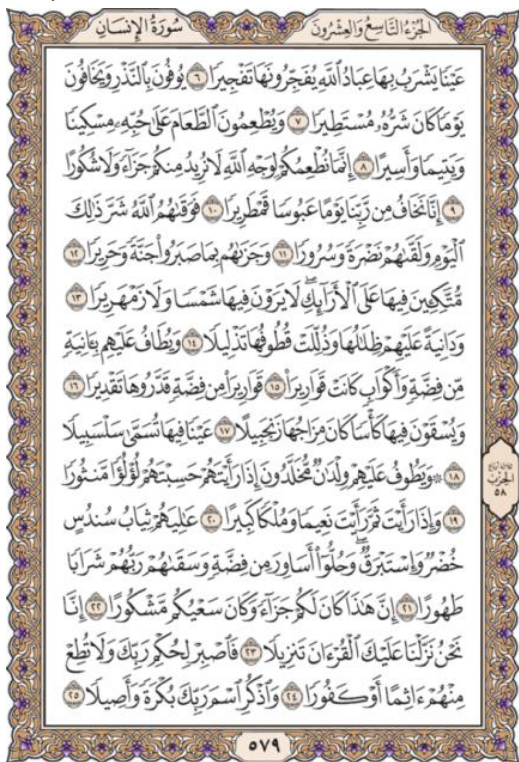 الجُزْءُ التَّاسِعُ وَالعِشْرُونَ
سُورَةُ الإِنسَانِ
عَيْنٗا يَشۡرَبُ بِهَا عِبَادُ ٱللَّهِ يُفَجِّرُونَهَا تَفۡجِيرٗا ٦ يُوفُونَ بِٱلنَّذۡرِ وَيَخَافُونَ
يَوۡمٗا كَانَ شَرُّهُۥ مُسۡتَطِيرٗا ٧ وَيُطۡعِمُونَ ٱلطَّعَامَ عَلَىٰ حُبِّهِۦ مِسۡكِينٗا
وَيَتِيمٗا وَأَسِيرًا ٨ إِنَّمَا نُطۡعِمُكُمۡ لِوَجۡهِ ٱللَّهِ لَا نُرِيدُ مِنكُمۡ جَزَآءٗ وَلَا شُكُورًا
٩ إِنَّا نَخَافُ مِن رَّبِّنَا يَوۡمًا عَبُوسٗا قَمۡطَرِيرٗا ١٠ فَوَقَىٰهُمُ ٱللَّهُ شَرَّ ذَٰلِكَ
ٱلۡيَوۡمِ وَلَقَّىٰهُمۡ نَضۡرَةٗ وَسُرُورٗا ١١ وَجَزَىٰهُم بِمَا صَبَرُواْ جَنَّةٗ وَحَرِيرٗا ١٢
مُّتَّكِـِٔينَ فِيهَا عَلَى ٱلۡأَرَآئِكِۖ لَا يَرَوۡنَ فِيهَا شَمۡسٗا وَلَا زَمۡهَرِيرٗا ١٣
وَدَانِيَةً عَلَيۡهِمۡ ظِلَٰلُهَا وَذُلِّلَتۡ قُطُوفُهَا تَذۡلِيلٗا ١٤ وَيُطَافُ عَلَيۡهِم بِـَٔانِيَةٖ
مِّن فِضَّةٖ وَأَكۡوَابٖ كَانَتۡ قَوَارِيرَا۠ ١٥ قَوَارِيرَاْ مِن فِضَّةٖ قَدَّرُوهَا تَقۡدِيرٗا ١٦
وَيُسۡقَوۡنَ فِيهَا كَأۡسٗا كَانَ مِزَاجُهَا زَنجَبِيلًا ١٧ عَيۡنٗا فِيهَا تُسَمَّىٰ سَلۡسَبِيلٗا
١٨ ۞ وَيَطُوفُ عَلَيۡهِمۡ وِلۡدَٰنٞ مُّخَلَّدُونَ إِذَا رَأَيۡتَهُمۡ حَسِبۡتَهُمۡ لُؤۡلُؤٗا مَّنثُورٗا
١٩ وَإِذَا رَأَيۡتَ ثَمَّ رَأَيۡتَ نَعِيمٗا وَمُلۡكٗا كَبِيرًا ٢٠ عَٰلِيَهُمۡ ثِيَابُ سُندُسٍ
خُضۡرٞ وَإِسۡتَبۡرَقٞۖ وَحُلُّوٓاْ أَسَاوِرَ مِن فِضَّةٖ وَسَقَىٰهُمۡ رَبُّهُمۡ شَرَابٗا
طَهُورًا ٢١ إِنَّ هَٰذَا كَانَ لَكُمۡ جَزَآءٗ وَكَانَ سَعۡيُكُم مَّشۡكُورًا ٢٢ إِنَّا
نَحۡنُ نَزَّلۡنَا عَلَيۡكَ ٱلۡقُرۡءَانَ تَنزِيلٗا ٢٣ فَٱصۡبِرۡ لِحُكۡمِ رَبِّكَ وَلَا تُطِعۡ
مِنۡهُمۡ ءَاثِمًا أَوۡ كَفُورٗا ٢٤ وَٱذۡكُرِ ٱسۡمَ رَبِّكَ بُكۡرَةٗ وَأَصِيلٗا ٢٥
الحِزْب
٥٨
٥٧٩